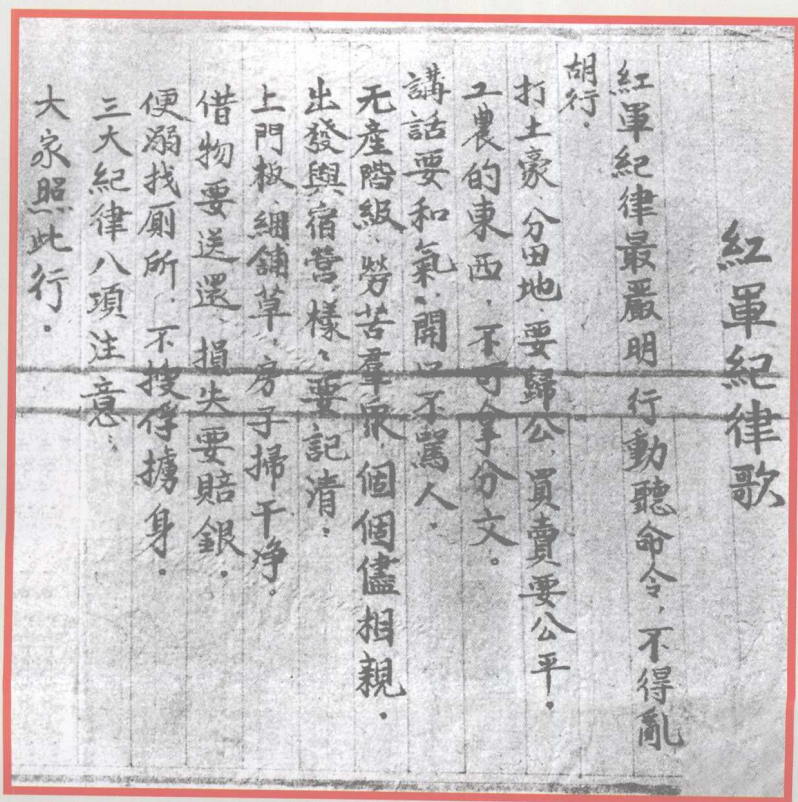 紅軍紀律歌
紅軍紀律最嚴明行動聽命令，不得亂
胡行．
打土豪、分田地、要歸公、買賣要公平．
工農的東西，不可拿分文。
講話要和氣，開口不罵人．
无產階級、勞苦羣衆、個個儘相親．
出發與宿營、樣樣要記清．
上門板、綑鋪草，房子掃干净．
借物要送還、損失要賠銀．
便溺找厠所，不搜俘擄身．
三大紀律八項注意，
大家照此行．